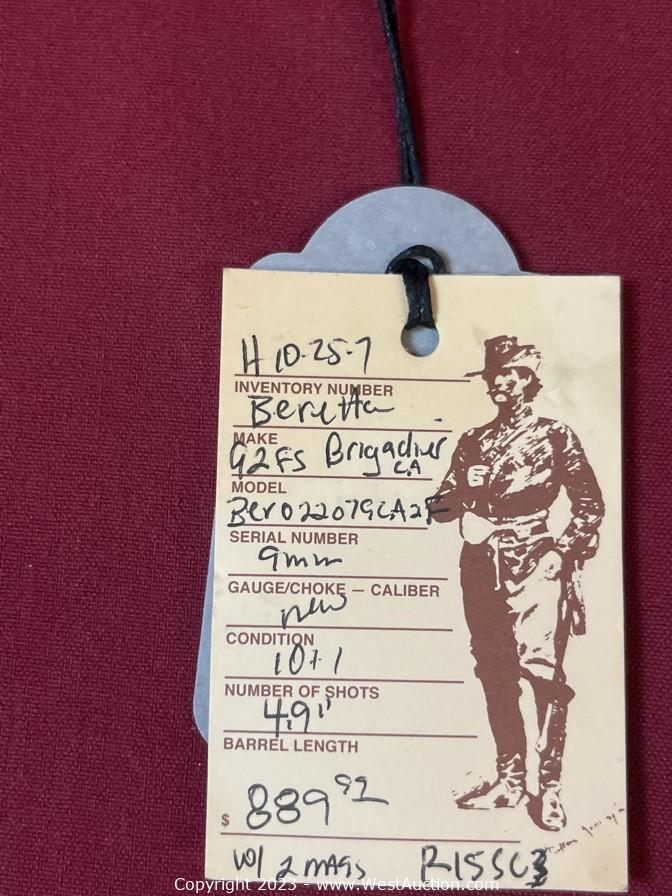 H 10-25-7
INVENTORY NUMBER
Beretta
MAKE
92FS Brigadier
CA
MODEL
Ber022079CA2F
SERIAL NUMBER
9mm
GAUGE/CHOKE — CALIBER
new
CONDITION
10+1
NUMBER OF SHOTS
4.9"
BARREL LENGTH
$ 889 92
W/ 2 MAGS
Copyright 2023 - www.WestAuction.com